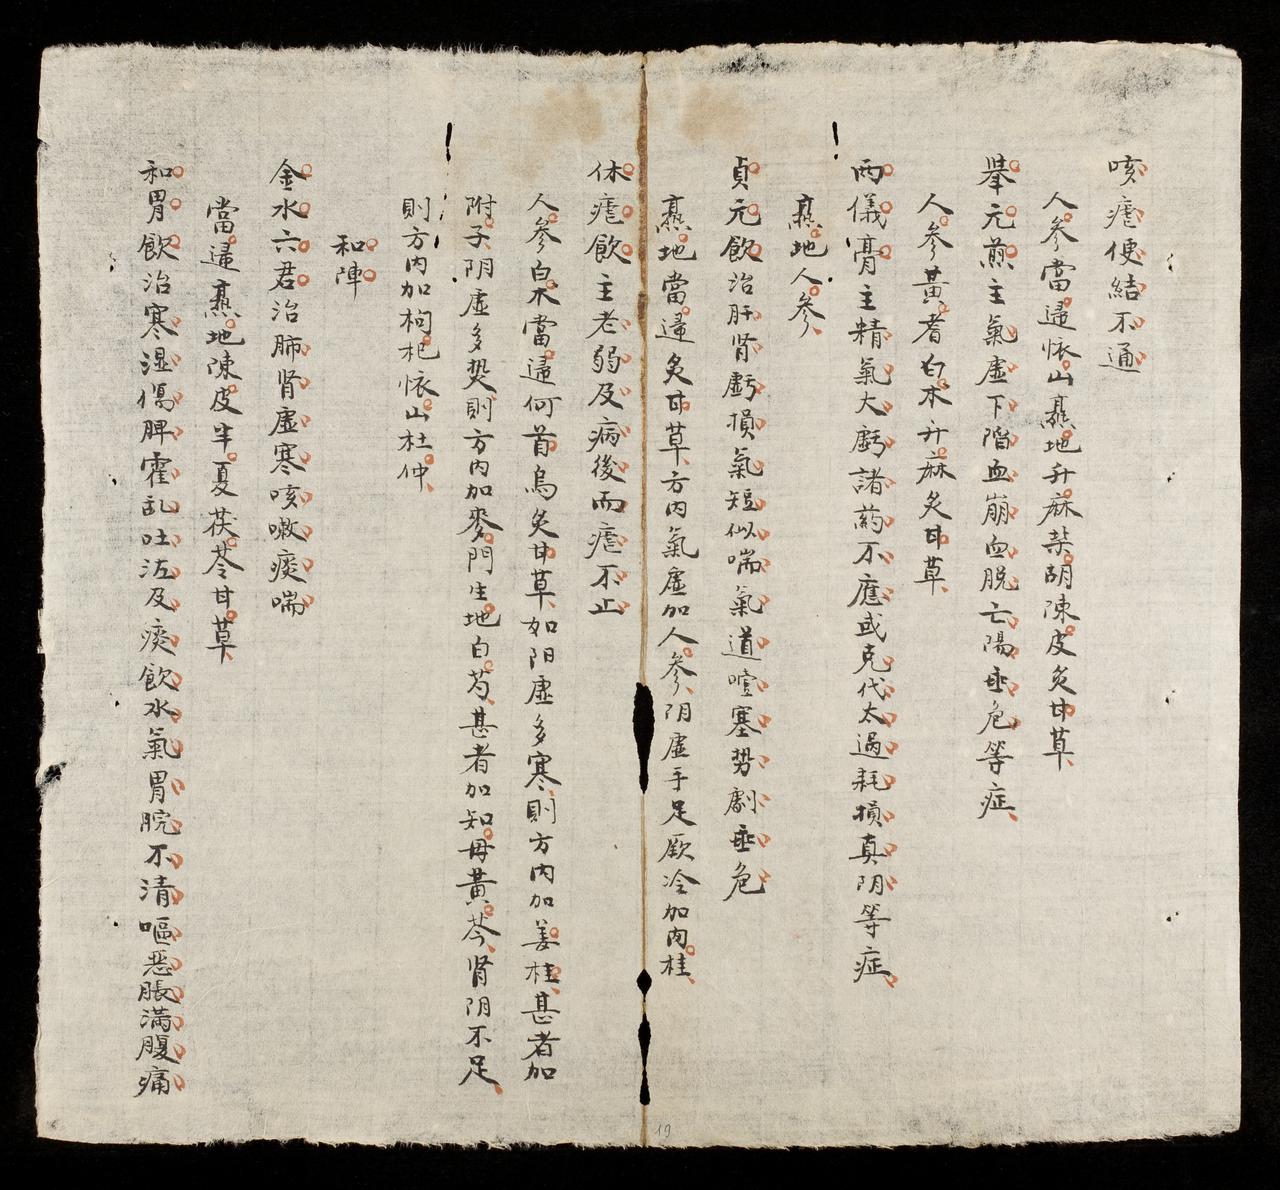 咳瘧便結不通
人參當歸怀山熟地升麻柴胡陳皮炙甘草
舉元煎主氣虛下陷血崩血脱亡陽垂危等症
人參黃耆白术升麻炙甘草
兩儀膏主精氣大虧諸药不應或克伐太過耗損真阴等症
熟地人參
貞元飲治肝肾虧損氣短似喘氣道噎塞势劇垂危
熟地當歸炙甘草方内氣虛加人參阴虛手足厥冷加肉桂
休瘧飲主老弱及病後而瘧不止
人參白术當歸何首烏炙甘草如阳虛多寒則方内加姜桂甚者加
附子阴虛多熱則方内加麥門生地白芍甚者加知母黃芩肾阴不足
則方内加枸杞怀山杜仲
和陣
金水六君治肺肾虛寒咳嗽痰喘
當歸熟地陳皮半夏茯苓甘草
和胃飲治寒湿傷脾霍乱吐泻及痰飲水氣胃脘不清嘔惡脹滿腹痛
19